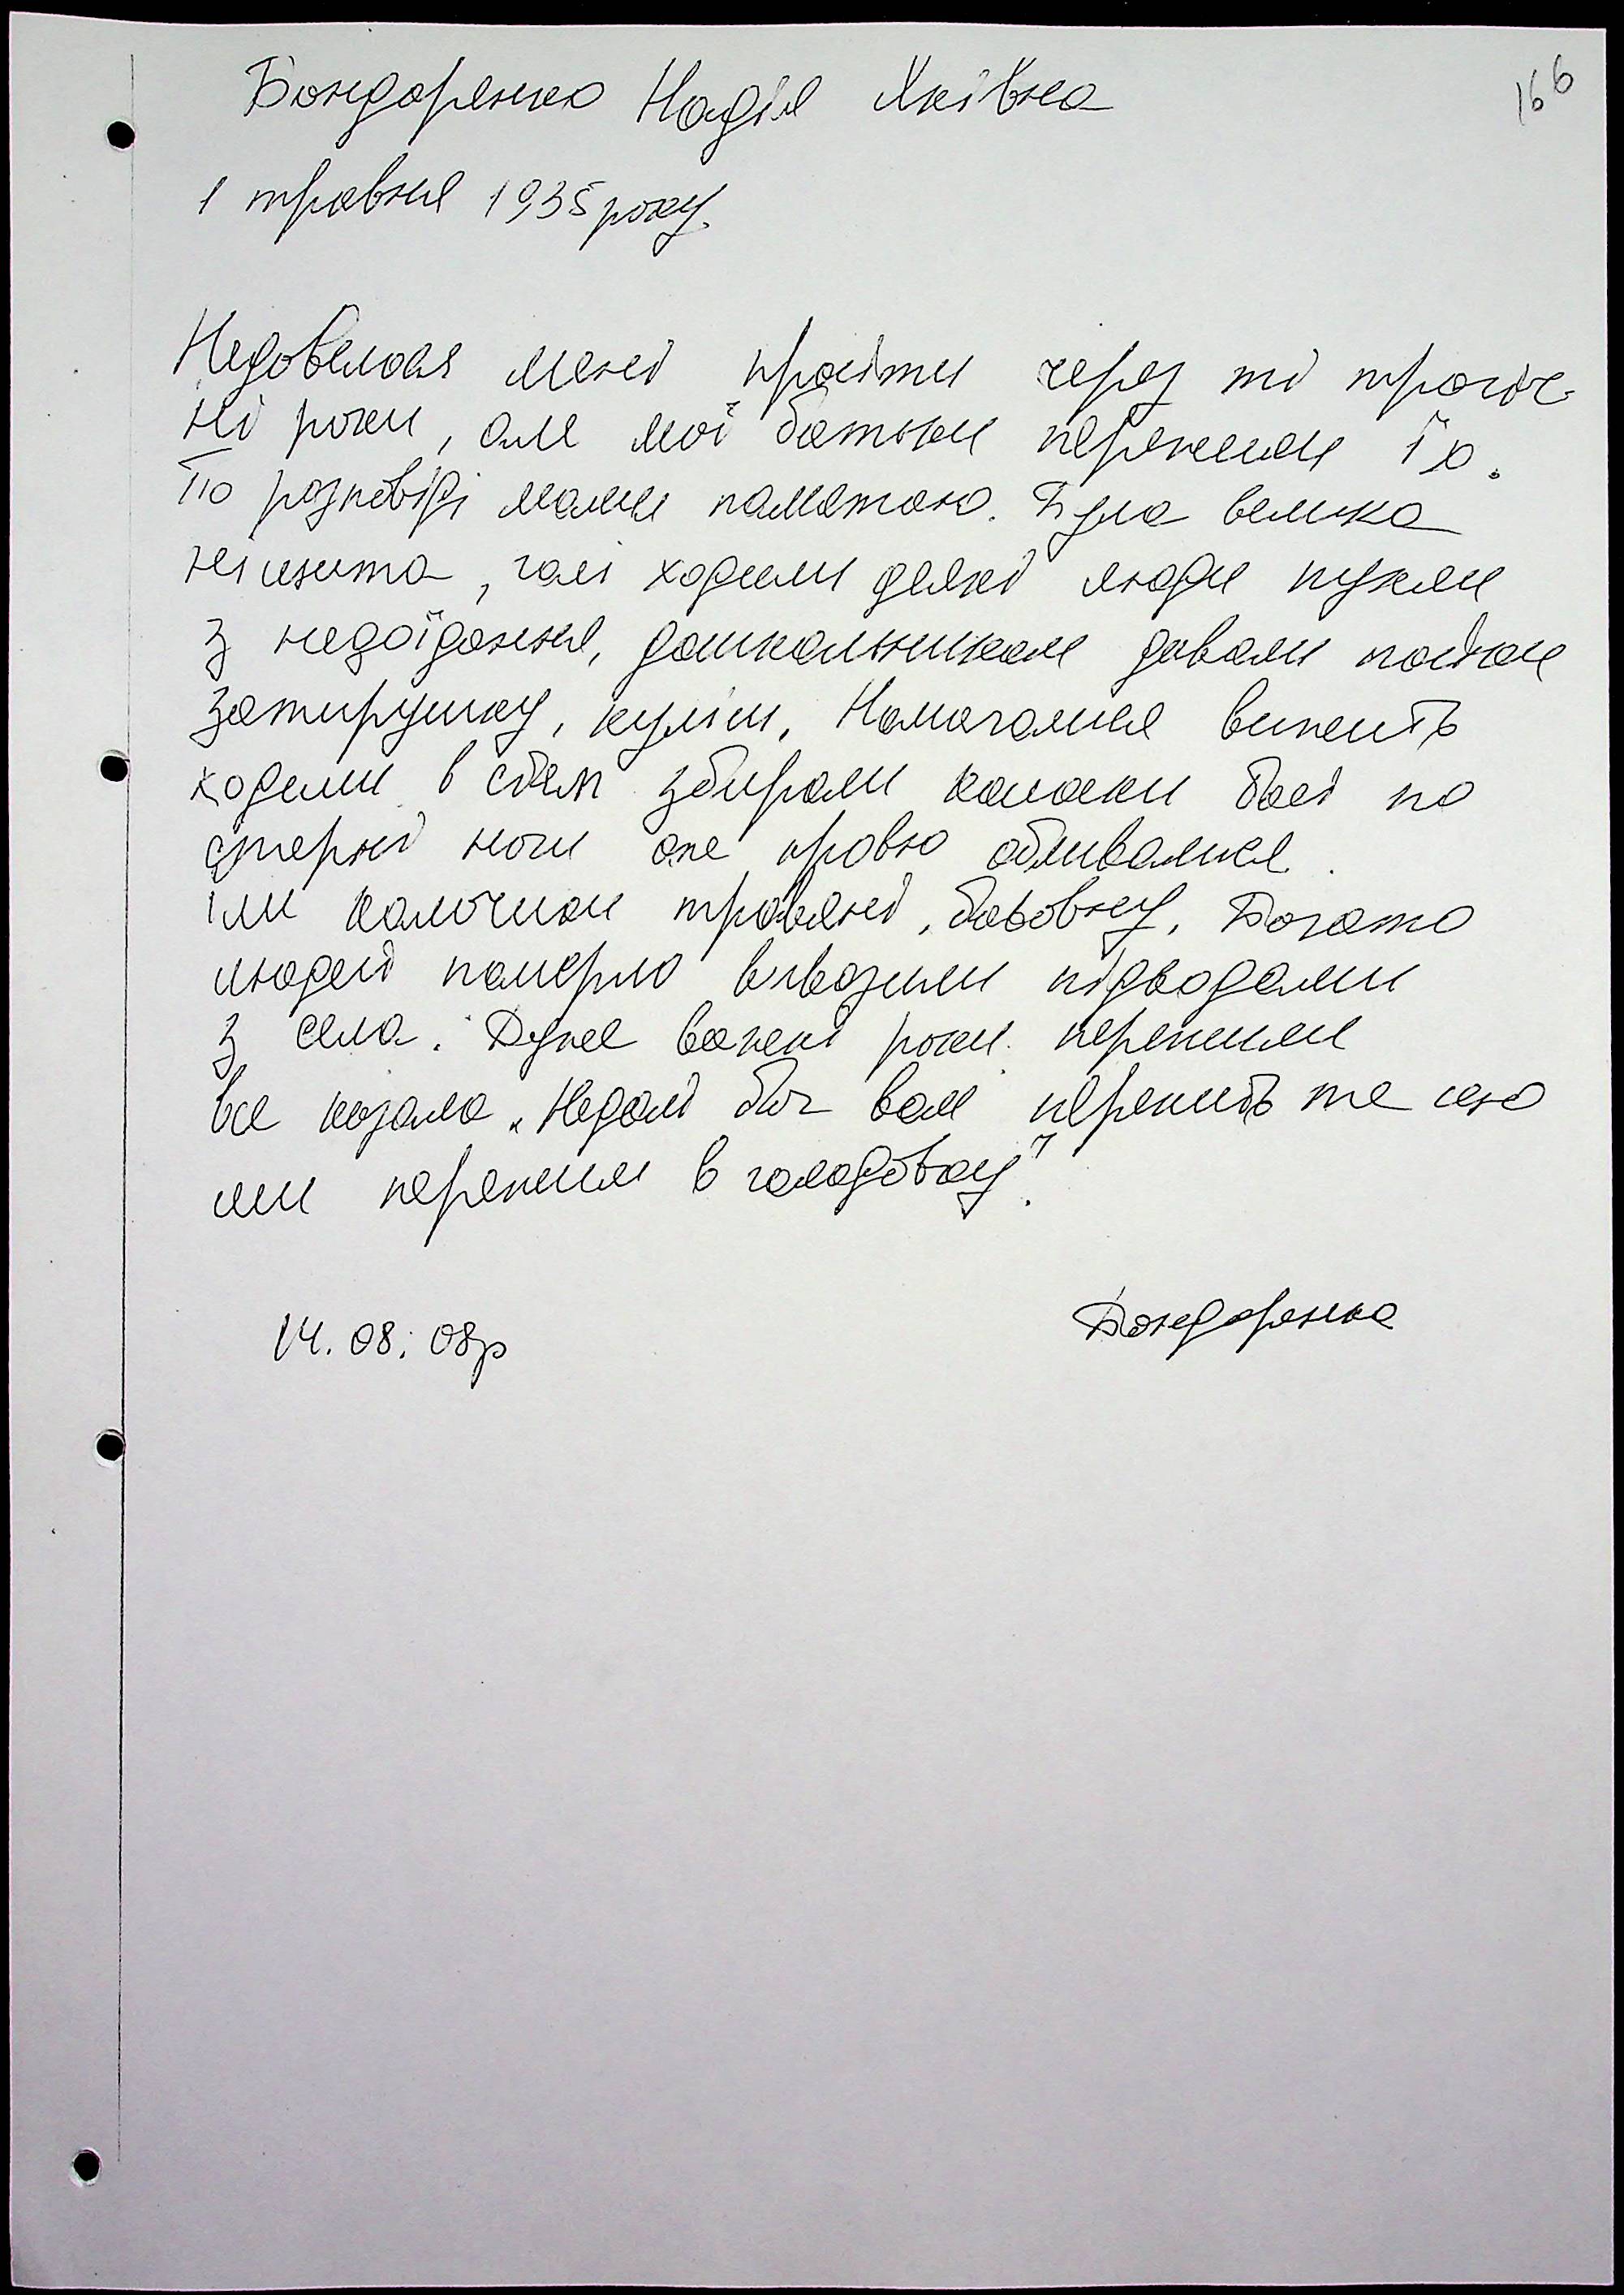 166
Бондаренко Надія Яківна
1 травня 1935 року.
Недовелося мені пройти через ті трагіч-
ні роки, але мої батьки пережили їх.
По розповіді мами памятаю. Була велика
нішита, голі ходили деякі люди пухли
з недоїдання, дошкольникам давали пайки
затирушку, куліш. Намагалися вижить
ходили в степ збирали колоски босі по
стерні ноги аж кровю обливалися.
їли калачики травяні, бабовну. Богато
людей померло вивозили підводами
з села. Дуже важкі роки пережили
все казала „Недай бог вам пережить те що
ми пережили в голодовку".
14.08.08р Бондаренко